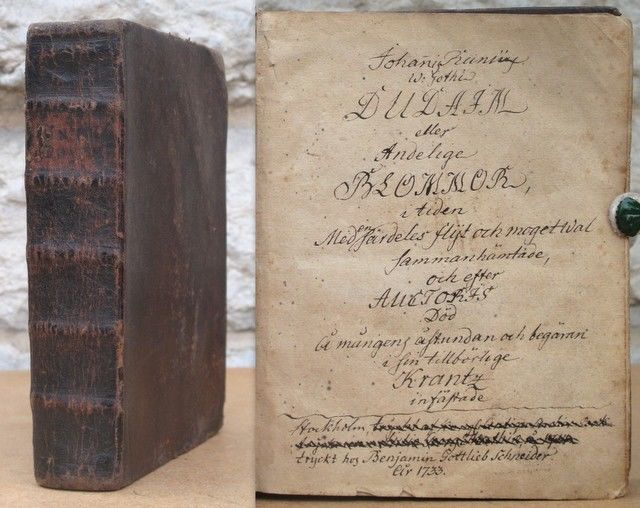 Johañis Runii
W: Gothi
DUDAIM
eller
Andelige
BLOMMOR,
i tiden
Med en särdeles flijt och moget wal
sammanhämtade,
och efter
AUCTORIS
Död
å mångens åstundan och begäran
i sin tillbörlige
Krantz
infästade
Stockholm,
tryckt hos Benjamin Gottlieb Schneider.
Åhr 1733.